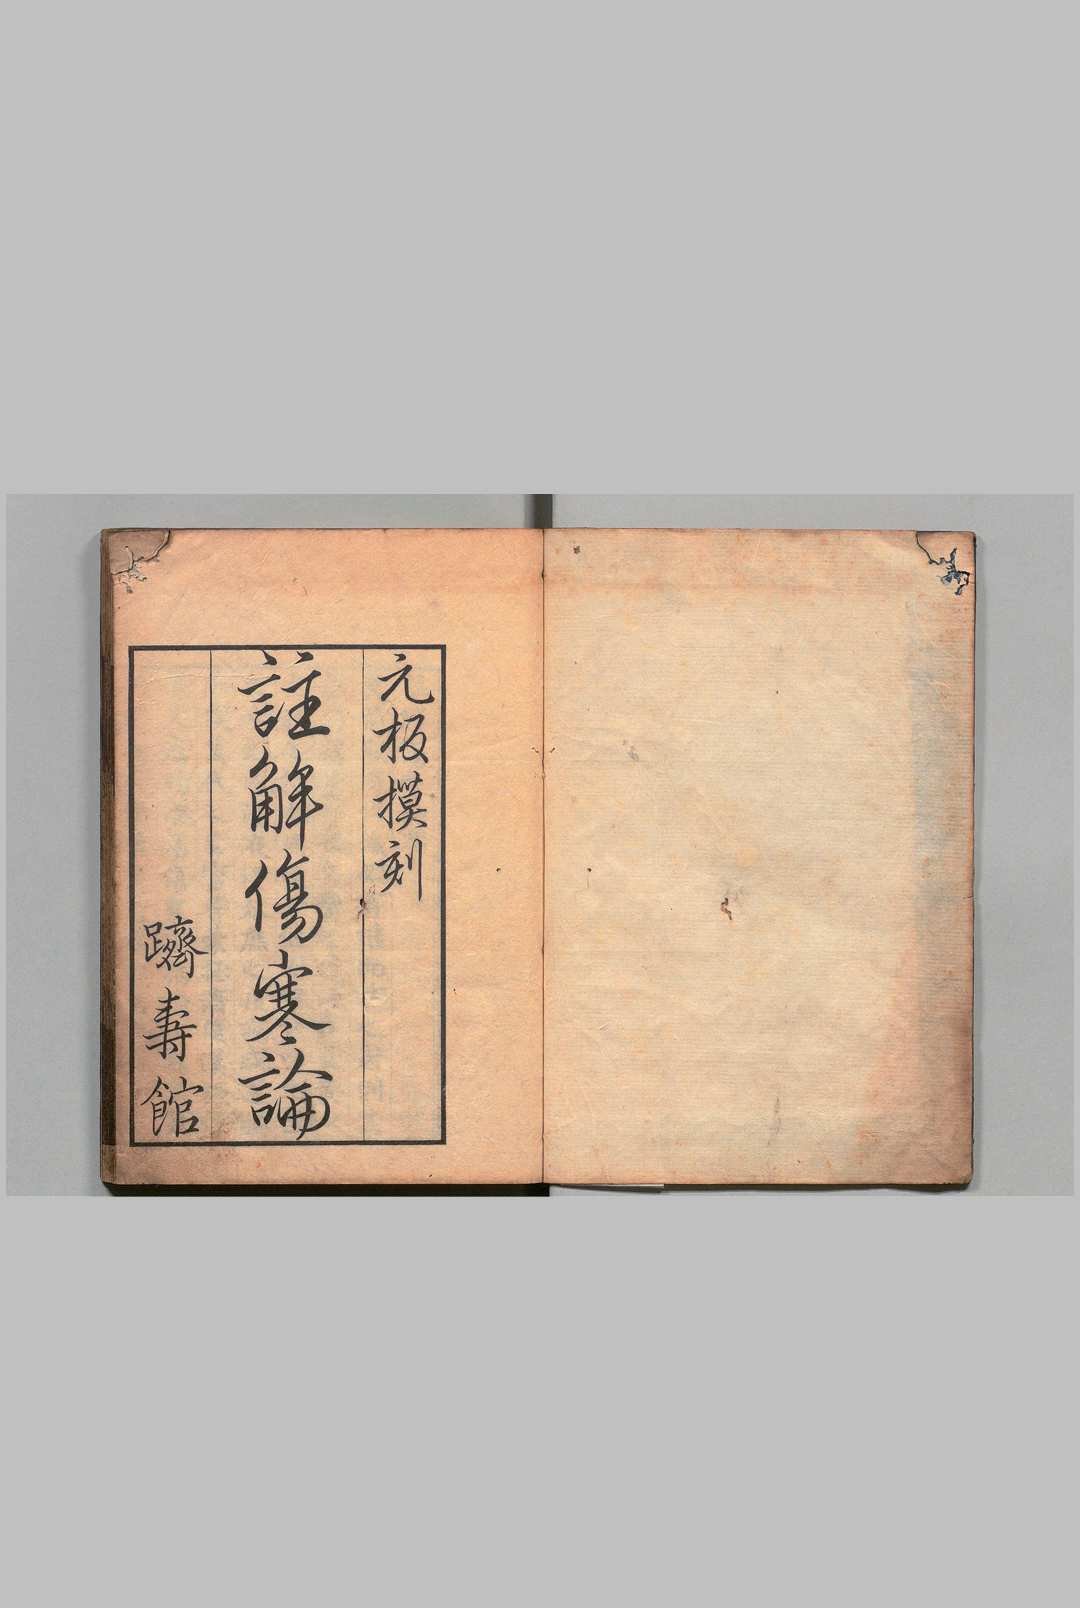 元板摸刻
註解傷寒論
躋壽館